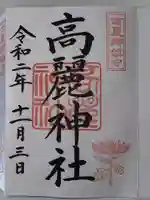 高麗神社
令和二年 十一月三日